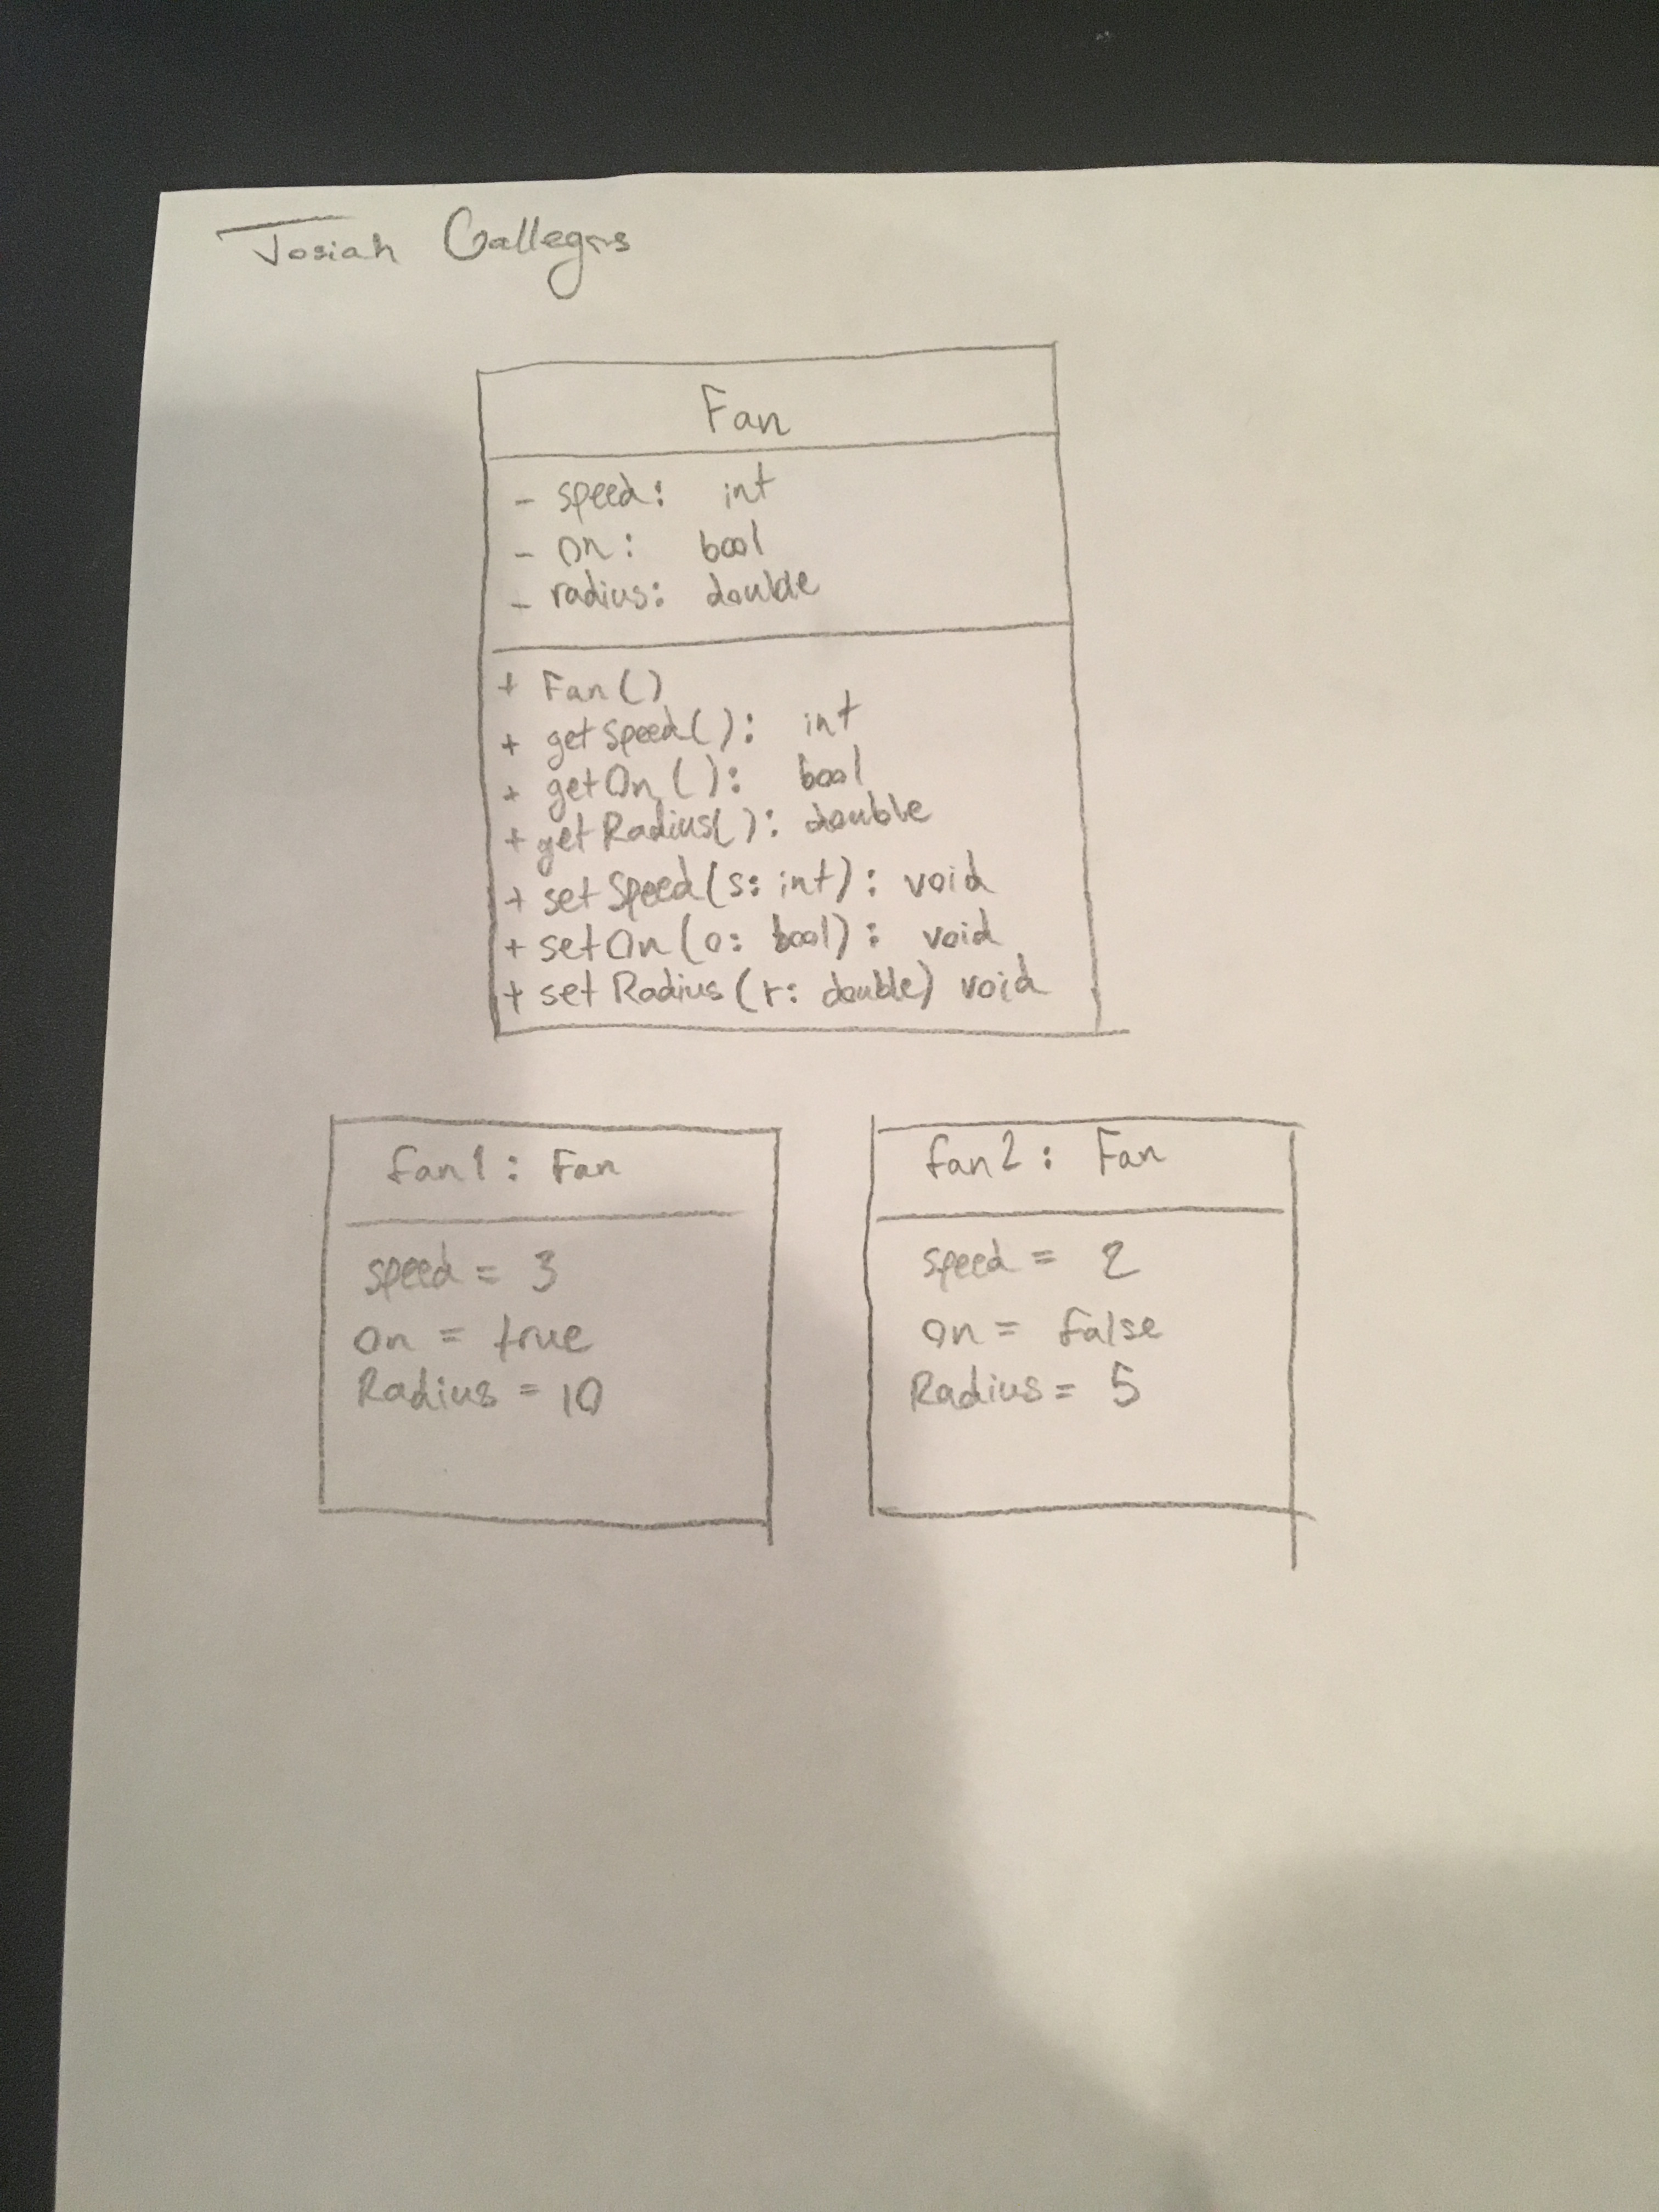 Josiah Gallegos
Fan
- speed: int
- on: bool
- radius: double
+ Fan()
+ getSpeed(): int
+ getOn(): bool
+ getRadius(): double
+ setSpeed(s: int): void
+ setOn(o: bool): void
+ setRadius(r: double) void
fan1: Fan
speed = 3
on = true
Radius = 10
fan2: Fan
speed = 2
on = false
Radius = 5